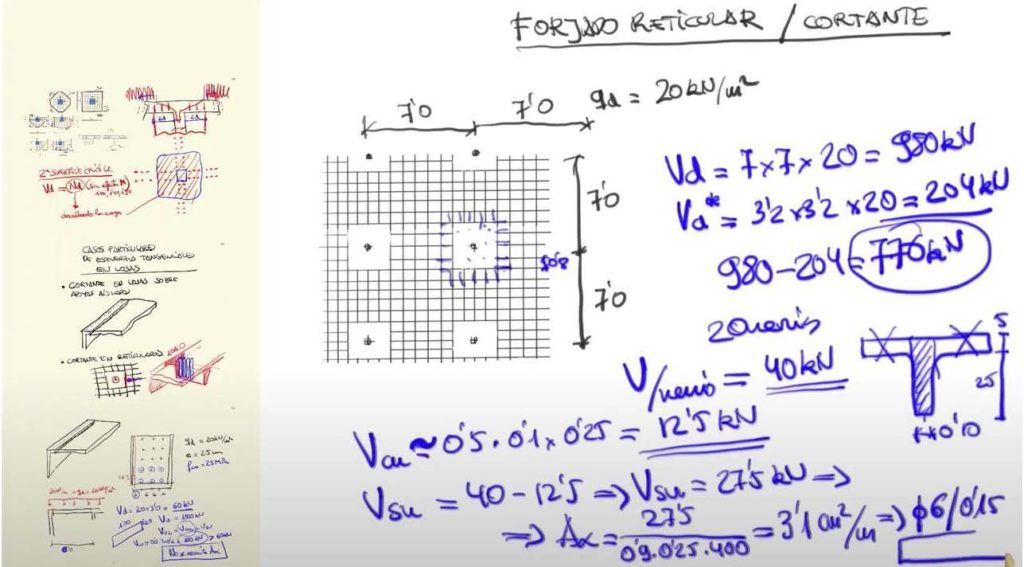 FORJADO RETICULAR / CORTANTE
7'0
7'0
qd = 20 kN/m²
7'0
7'0
8'08
Vd = 7 x 7 x 20 = 980 kN
Vd* = 3'2 x 3'2 x 20 = 204 kN
980 - 204 = 776 kN
20 nervios
V/nervio = 40 kN
5
25
0'10
Vcu ≈ 0'5 · 0'1 x 0'25 = 12'5 kN
Vsu = 40 - 12'5 => Vsu = 27'5 kN =>
=> Aα = 27'5 / 0'9·0'25·400 = 3'1 cm²/m => φ6/0'15
2ª SUPERFICIE CRÍTICA
Vd = Nd
descontando la carga
CASOS PARTICULARES
DE ESFUERZOS TANGENCIALES
EN LOSAS
• CORTANTE EN LOSAS SOBRE
APOYOS AISLADOS
• CORTANTE EN RETICULARES
qd = 20 kN/m²
e = 25 cm
fck = 25 MPa
Vd = 20 x 3'0 = 60 kN
NO NECESITA Aα